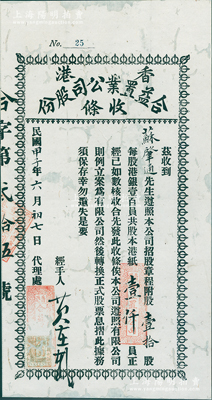 No. 25
香港
合益置業公司股份
收條
茲收到
蘇肇通先生遵照本公司招股章程附股壹拾股
每股港銀壹百員共股本港紙壹仟員正
經已如數核收合先發此收條俟本公司遵照有限公司
則例立案為有限公司然後轉換正式股票息摺此據務
須保存幸勿遺失是要
民國甲子年六月初七日 代理處
經手人
合字第弍拾伍號